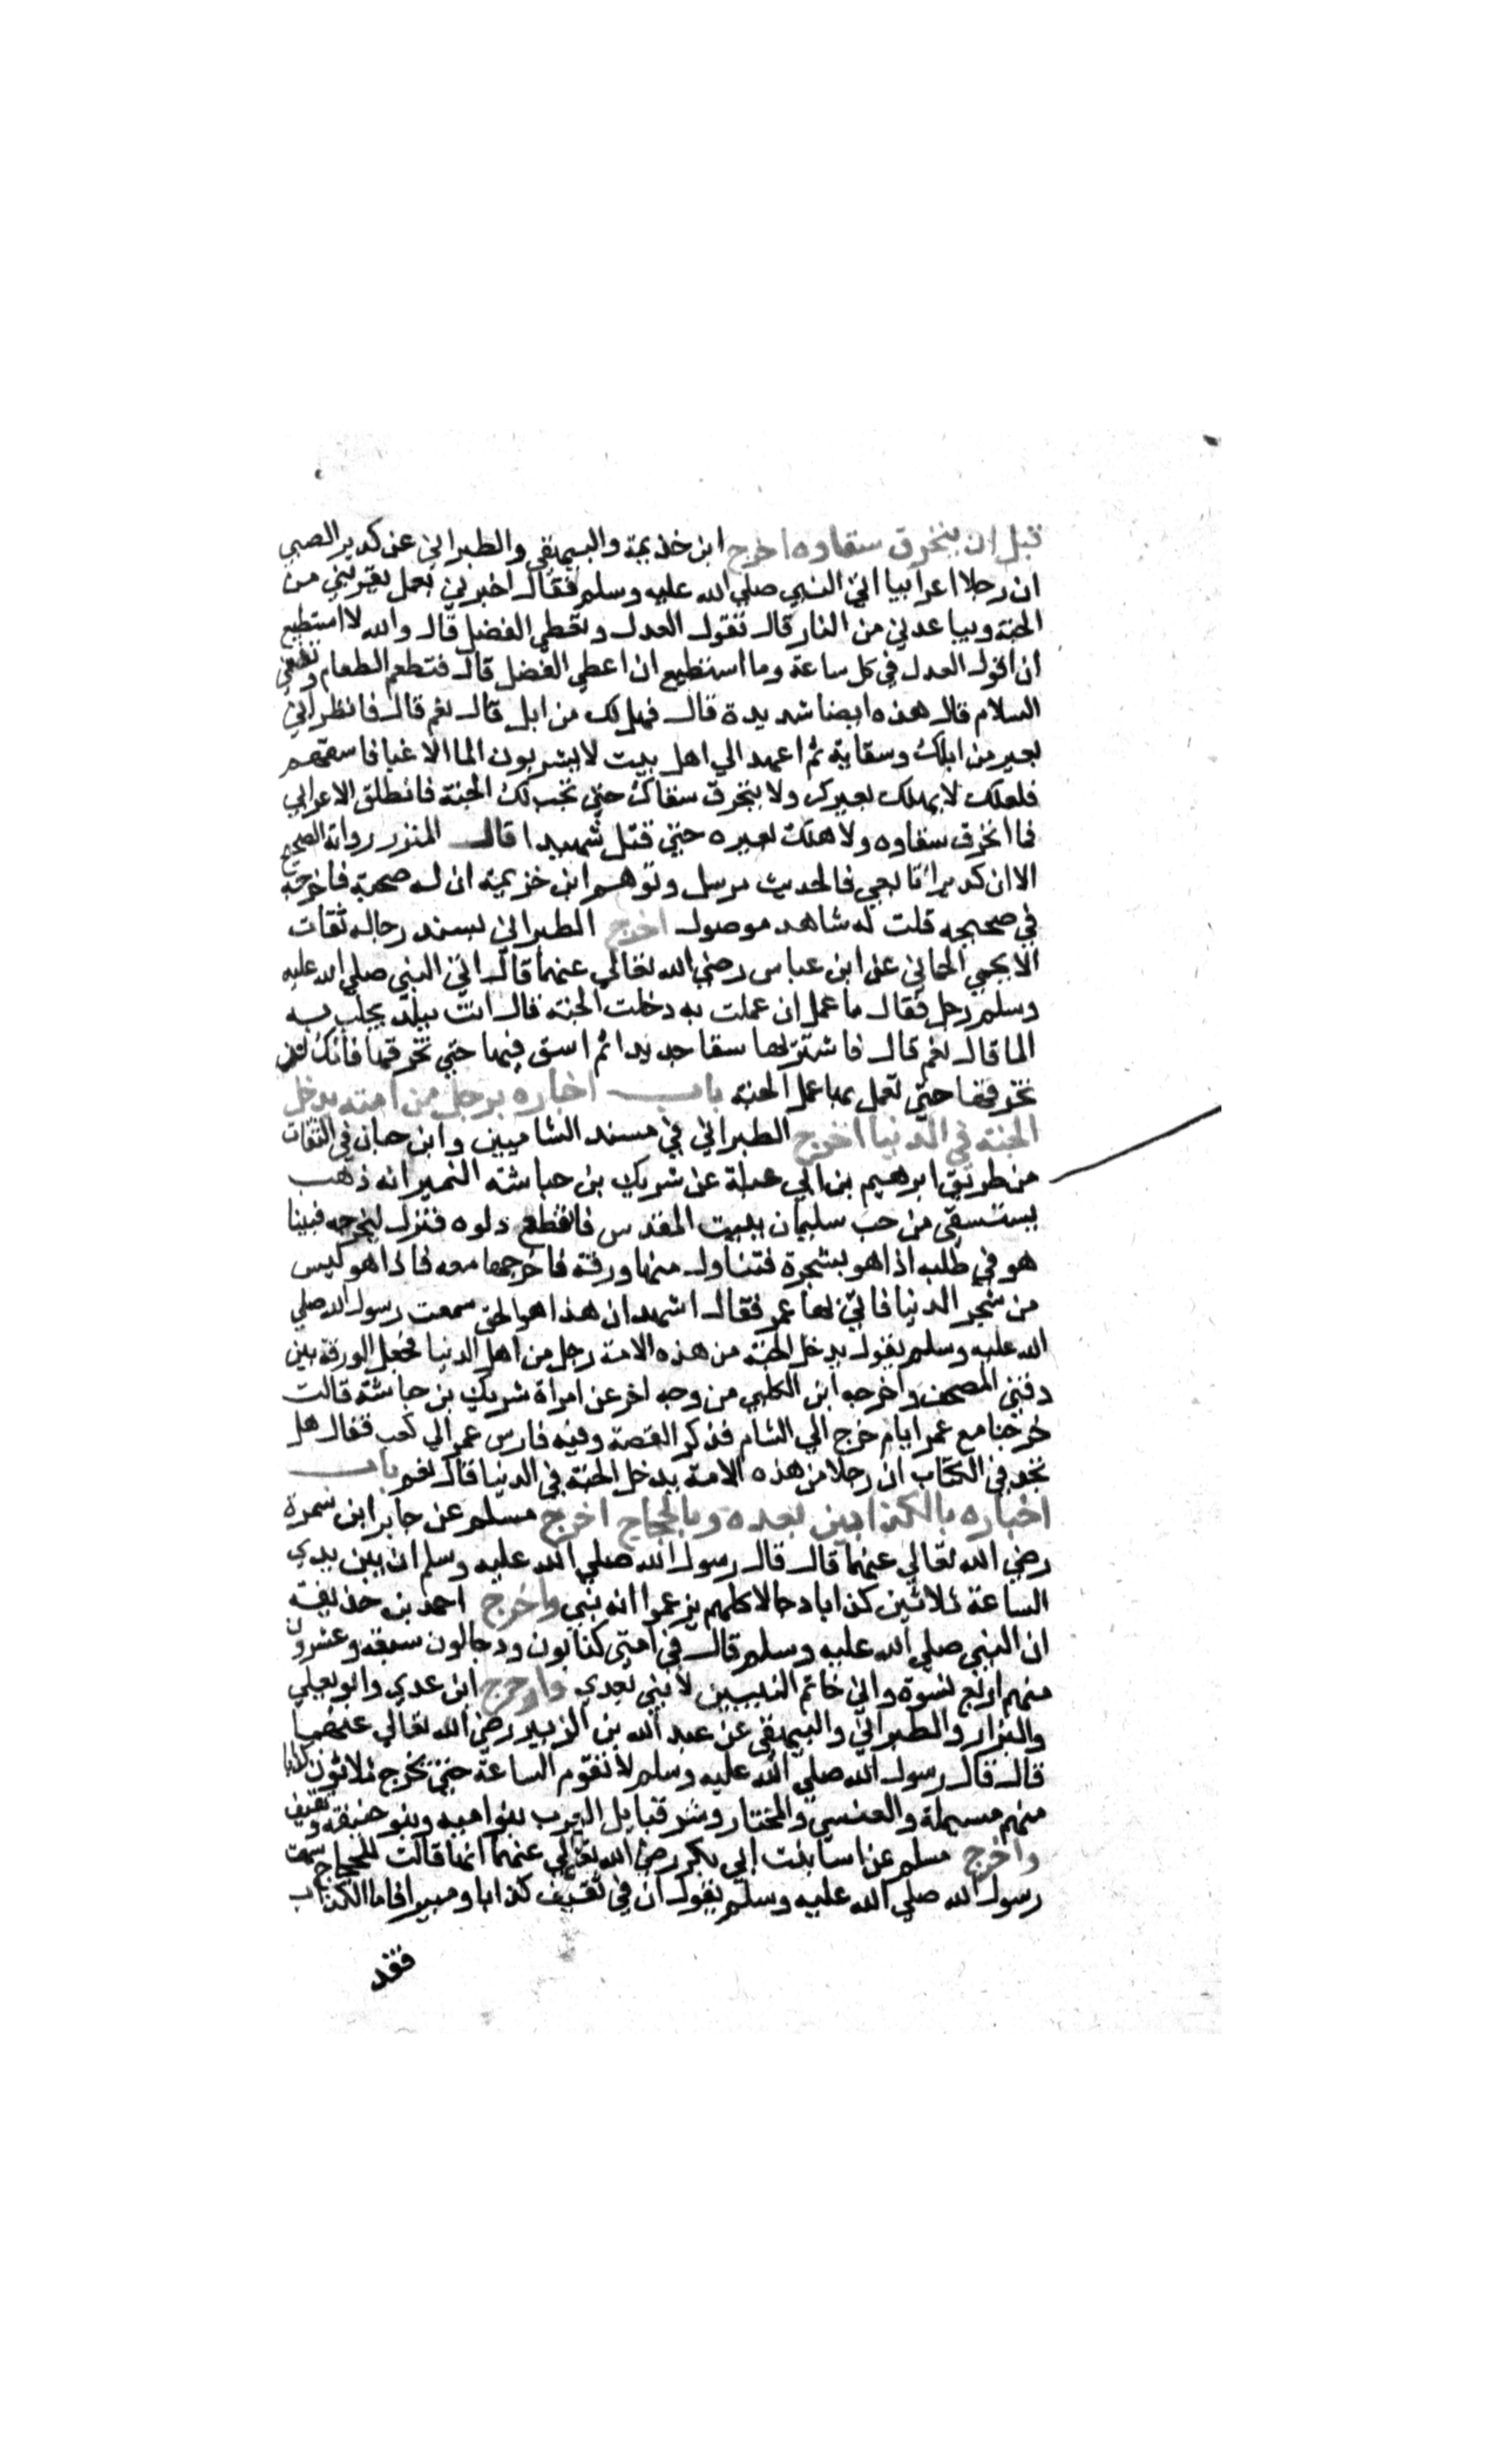 قبل ان ينخرق سقاوه اخرج ابن خذيمة والبيهقي والطبراني عن كدير الضبي
ان رجلا اعرابيا اتي النبي صلي الله عليه وسلم فقال اخبرني بعمل يقربني من
الجنة ويباعدني من النار قال تقول العدل وتعطي الفضل قال والله لا استطيع
ان اقول العدل في كل ساعة وما استطيع ان اعطي الفضل قال فتطعم الطعام وتفشي
السلام قال هذه ايضا شديدة قال فهل لك من ابل قال نعم قال فانظر الي
بعير من ابلك وسقاية ثم اعمد الي اهل بيت لا يشربون الما الا غبا فاسقهم
فلعلك لا يهلك بعيرك ولا ينخرق سقاك حتي تجب لك الجنة فانطلق الاعرابي
فما انخرق سقاوه ولا هلك بعيره حتي قتل شهيدا قال المنذر رواته الصحيح
الا ان كديرا تابعي فالحديث مرسل وتوهم ابن خزيمة ان له صحبة فاخرجه
في صحيحه قلت له شاهد موصول اخرج الطبراني بسند رجاله ثقات
الا يحيي الحماني عن ابن عباس رضي الله تعالي عنهما قال اتي النبي صلي الله عليه
وسلم رجل فقال ما عمل ان عملت به دخلت الجنة قال انت ببلد يجلب به
الما قال نعم قال فاشتر بها سقا جديدا ثم اسق فيها حتي تخرقها فانك لن
تخرقها حتي تعمل بها عمل الجنة باب اخباره برجل من امته يدخل
الجنة في الدنيا اخرج الطبراني في مسند الشاميين وابن حبان في الثقات
من طريق ابرهيم بن ابي عبلة عن شريك بن حباشة النميرانه ذهب
يستسقي من جب سليمان ببيت المقدس فانقطع دلوه فنزل ليخرجه فبينا
هو في طلبه اذا هو بشجرة فتناول منها ورقة فاخرجها معه فاذا هو ليس
من شجر الدنيا فاتي بها عمر فقال اشهد ان هذا هو الحق سمعت رسول الله صلي
الله عليه وسلم يقول يدخل الجنة من هذه الامة رجل من اهل الدنيا فجعل الورقة بين
دفتي المصحف واخرجه ابن الكلبي من وجه اخر عن امراة شريك بن حباشة قالت
خرجنا مع عمر ايام خرج الي الشام فذكر القصة وفيه فارس عمر الي كعب فقال هل
تجد في الكتاب ان رجلا من هذه الامة يدخل الجنة في الدنيا قال نعم باب
اخباره بالكذابين بعده وبالحجاج اخرج مسلم عن جابر ابن سمرة
رضي الله تعالي عنهما قال قال رسول الله صلي الله عليه وسلم ان بين يدي
الساعة ثلاثين كذابا دجالا كلهم يزعموا انه نبي واخرج احمد بن حذيفة
ان النبي صلي الله عليه وسلم قال في امتي كذابون ودجالون سبعة وعشرون
منهم اربع نسوة واني خاتم النبيين لا نبي بعدي واخرج ابن عدي وابو يعلي
والبزار والطبراني والبيهقي عن عبد الله بن الزبير رضي الله تعالي عنهما
قال قال رسول الله صلي الله عليه وسلم لا تقوم الساعة حتي يخرج ثلاثون كذابا
منهم مسيلمة والعنسي والمختار وشر قبايل العرب بنوا اميه وبنو حنيفة وثقيف
واخرج مسلم عن اسما بنت ابي بكر رضي الله تعالي عنهما انها قالت للحجاج سمعت
رسول الله صلي الله عليه وسلم يقول ان في ثقيف كذابا ومبيرا فاما الكذاب
فقد